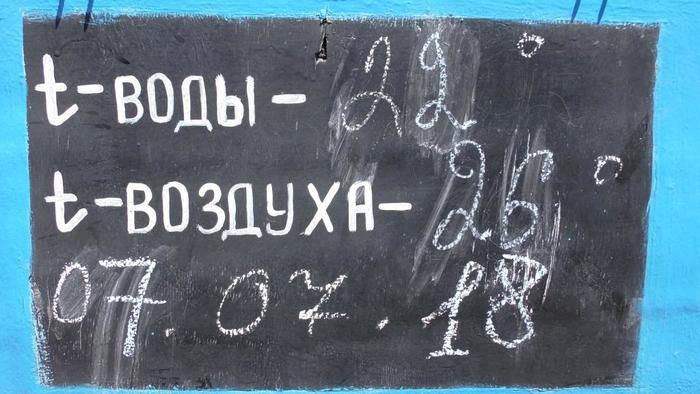 t-воды-22°
t-воздуха-26°
07.07.18